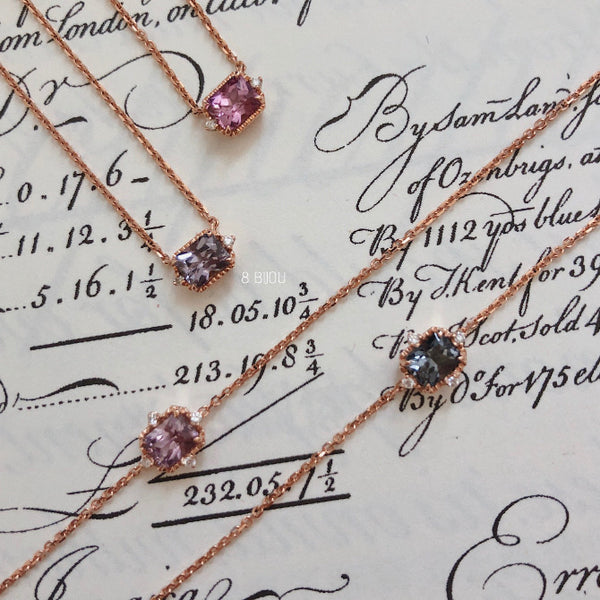 om London, on
Dr
By Sam Lam. fo
0.17.6-
of Ozenbrigs, an
11.12.3 1/4
By 1112 yds blue
8 BIJOU
5.16.1 1/2
By J. Kent for 39
18.05.10 3/4
Scot, Sold 4
213.19.8 3/4
By Do For 175 ell
232.05.7 1/2
Erro